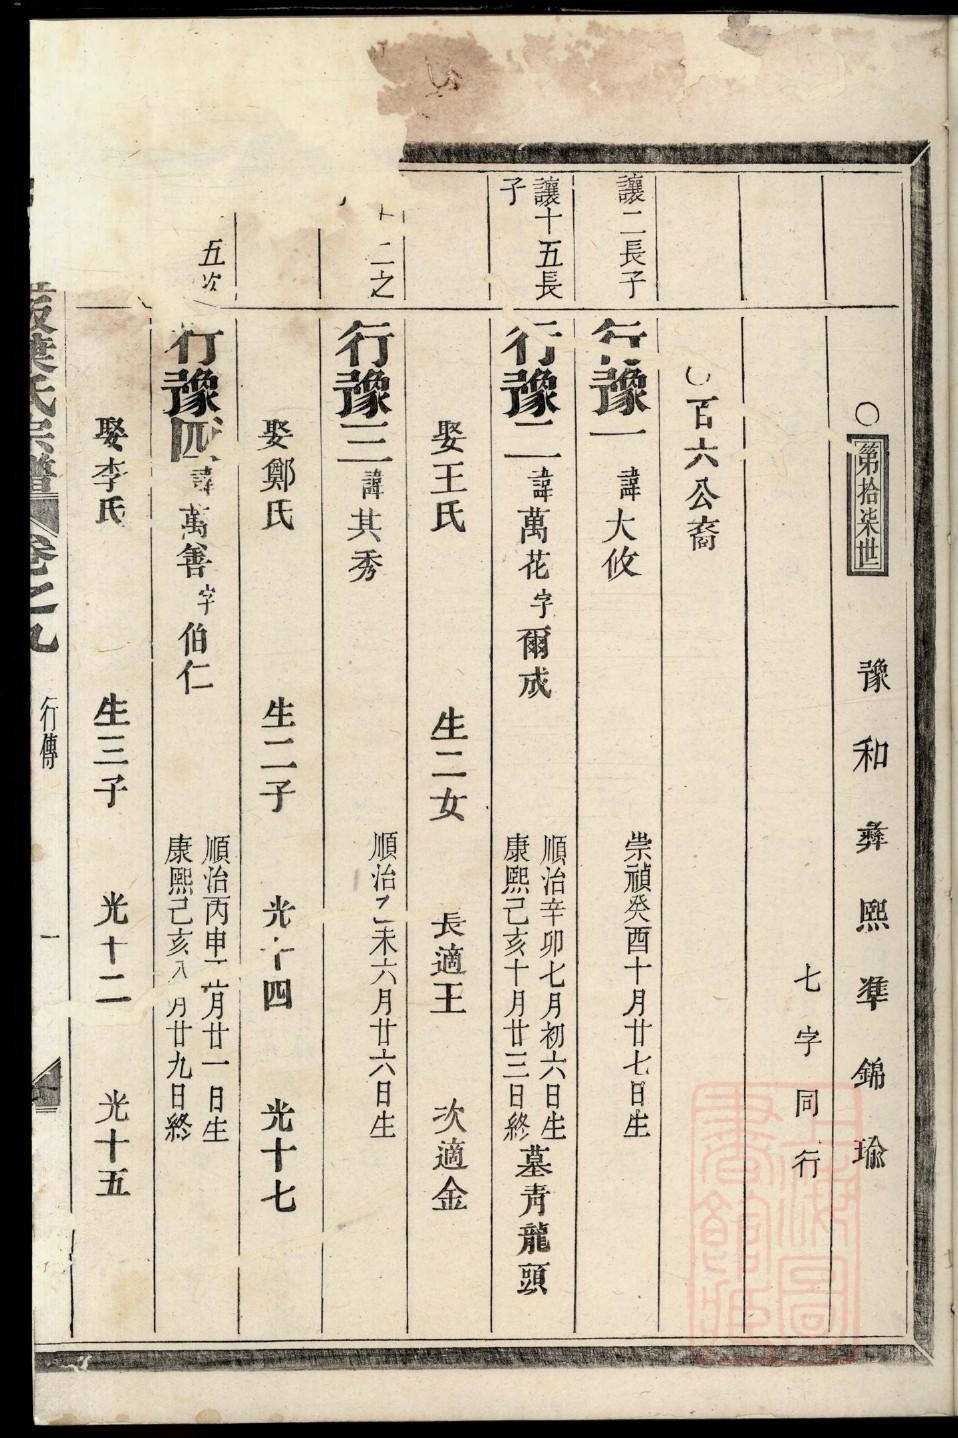 ○第拾柒世 豫和彝熙準錦瑜
七字同行
○百六公裔
讓二長子
行豫一 諱大攸 崇禎癸酉十月廿七日生
讓十五長子
行豫二 諱萬花 字爾成 順治辛卯七月初六日生 康熙己亥十月廿三日終 墓青龍頭
娶王氏 生二女 長適王 次適金
二之
行豫三 諱其秀 順治乙未六月廿六日生
娶鄭氏 生二子 光十四 光十七
五次
行豫四 諱萬善 字伯仁 順治丙申 月廿一日生 康熙己亥八月廿九日終
娶李氏 生三子 光十二 光十五
葉氏宗譜 卷之九 行傳 一
上海圖書館藏